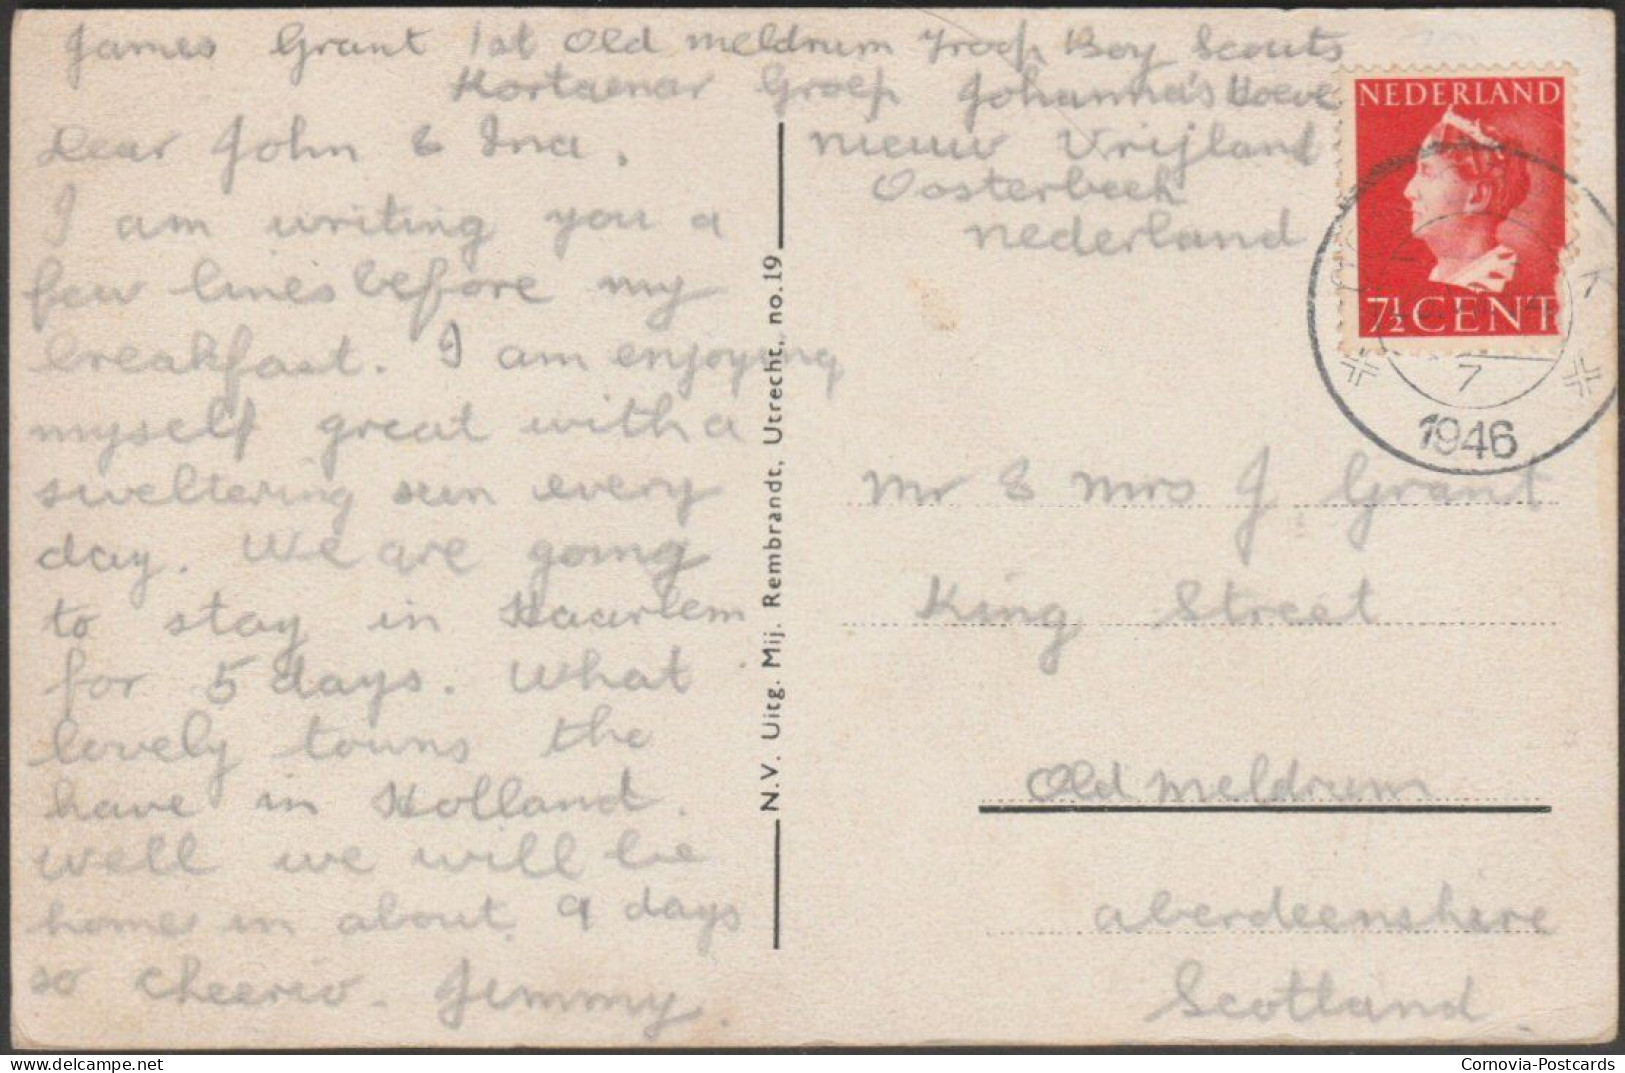 James Grant 1st Old Meldrum Troop Boy Scouts
Kortaenar Groep Johanna's Hoeve
Nieuw Vrijland
Oosterbeek
Nederland
Dear John & Ina.
I am writing you a
few lines before my
breakfast. I am enjoying
myself great with a
sweltering sun every
day. We are going
to stay in Haarlem
for 5 days. What
lovely towns the
have in Holland.
Well we will be
home in about 9 days
so cheerio. Jimmy.
N.V. Uitg. Mij. Rembrandt, Utrecht, no. 19
NEDERLAND
7½ CENT
7
1946
Mr & Mrs J Grant
King Street
Old Meldrum
Aberdeenshire
Scotland
Cornovia-Postcards